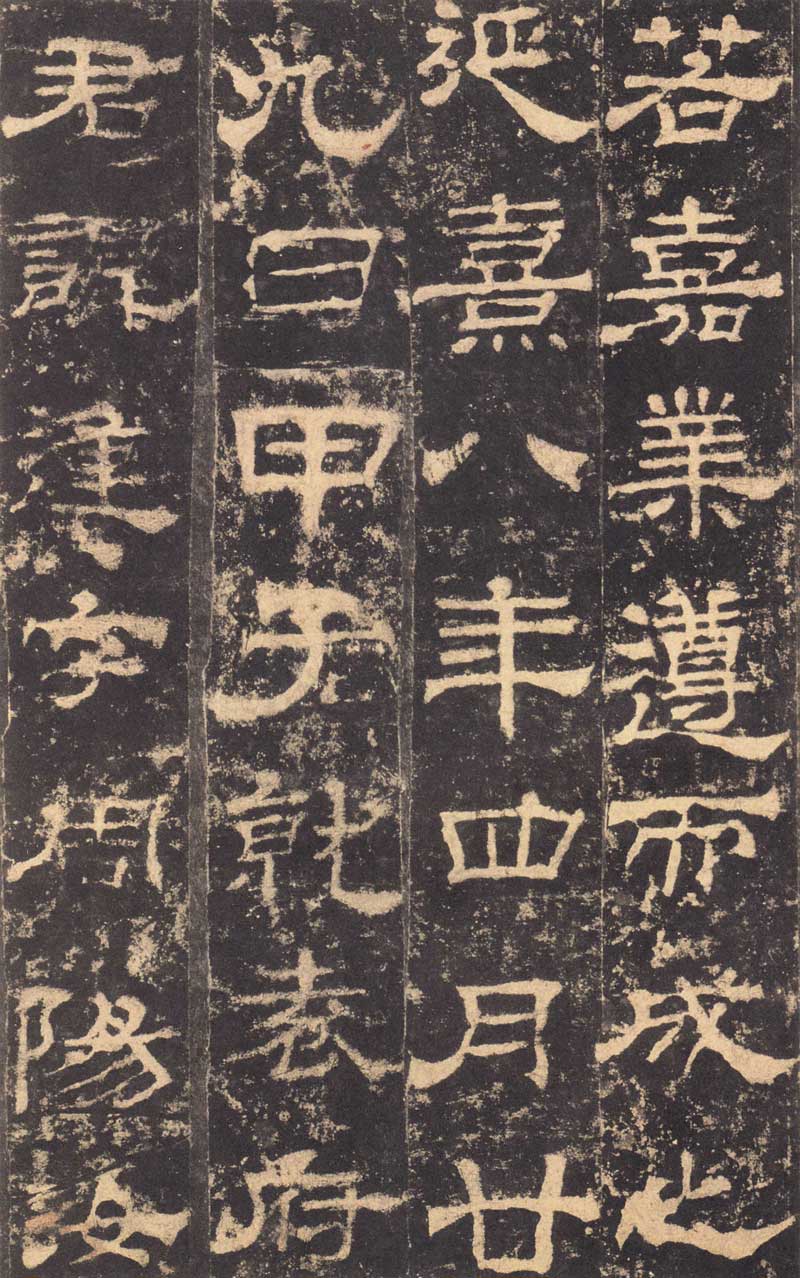 若嘉業遵而成之
延熹八年四月廿
九日甲子就袁府
君諱逢字周陽汝